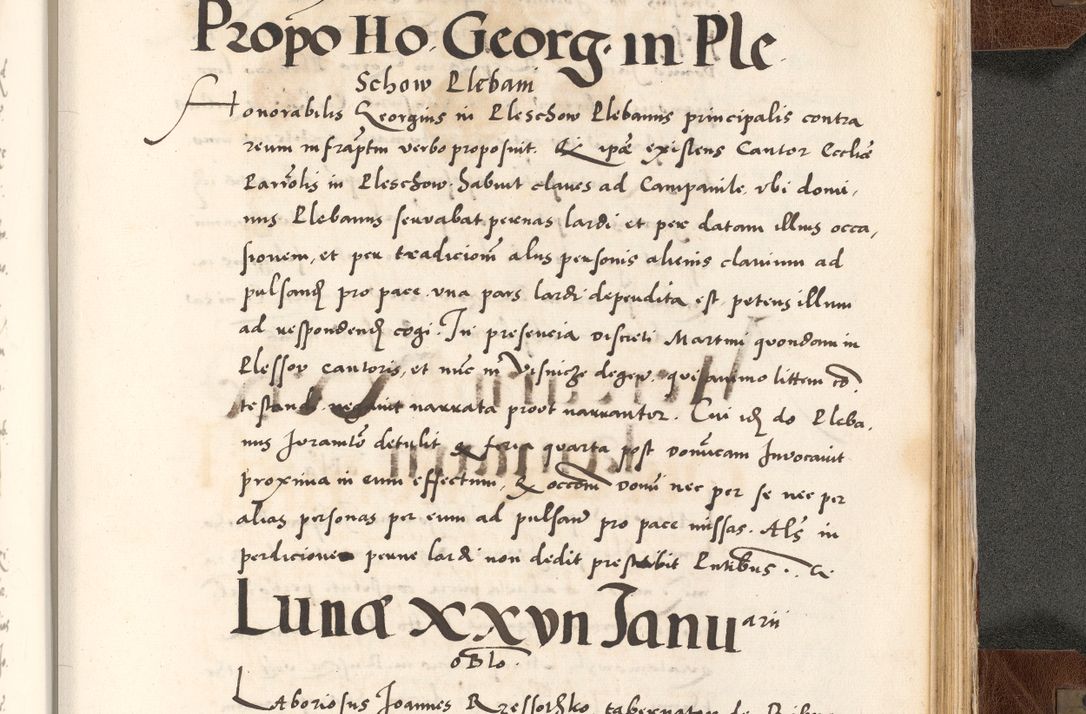 Propo Ho. Georg. in Ple
Schow Plebani
Honorabilis Georgius in Pleschow Plebanus principalis contra
reum infraptm verbo proposuit. Q ipse existens Cantor Ecclie
Parrolis in Pleschow habuit claves ad Campanile, vbi domi,
nus Plebanus servabat pernas lardi et per datam illius occa,
sionem, et per tradiciom alys personis alienis clavium ad
pulsand pro pace vna pars lardi deperdita est petens illum
ad respondend cogi. In presencia Discreti Martini quondam in
Plessov Cantoris, et nunc in Visnicze degen. qui animo litem
testand. negavit narrata prout narrantur. Cui id do Pleba.
nus Juramto detulit q feria quarta post Domicam Invocavit
proxima in eum effectum, Q occom Domi nec per se nec per
alias personas per eum ad pulsan pro pace missas. Als in
perdicionem perne lardi non dedit prestabit Pntibus.
Lunæ XXVII Janu arii
oblo.
Laboriosus Joannes tabernator de